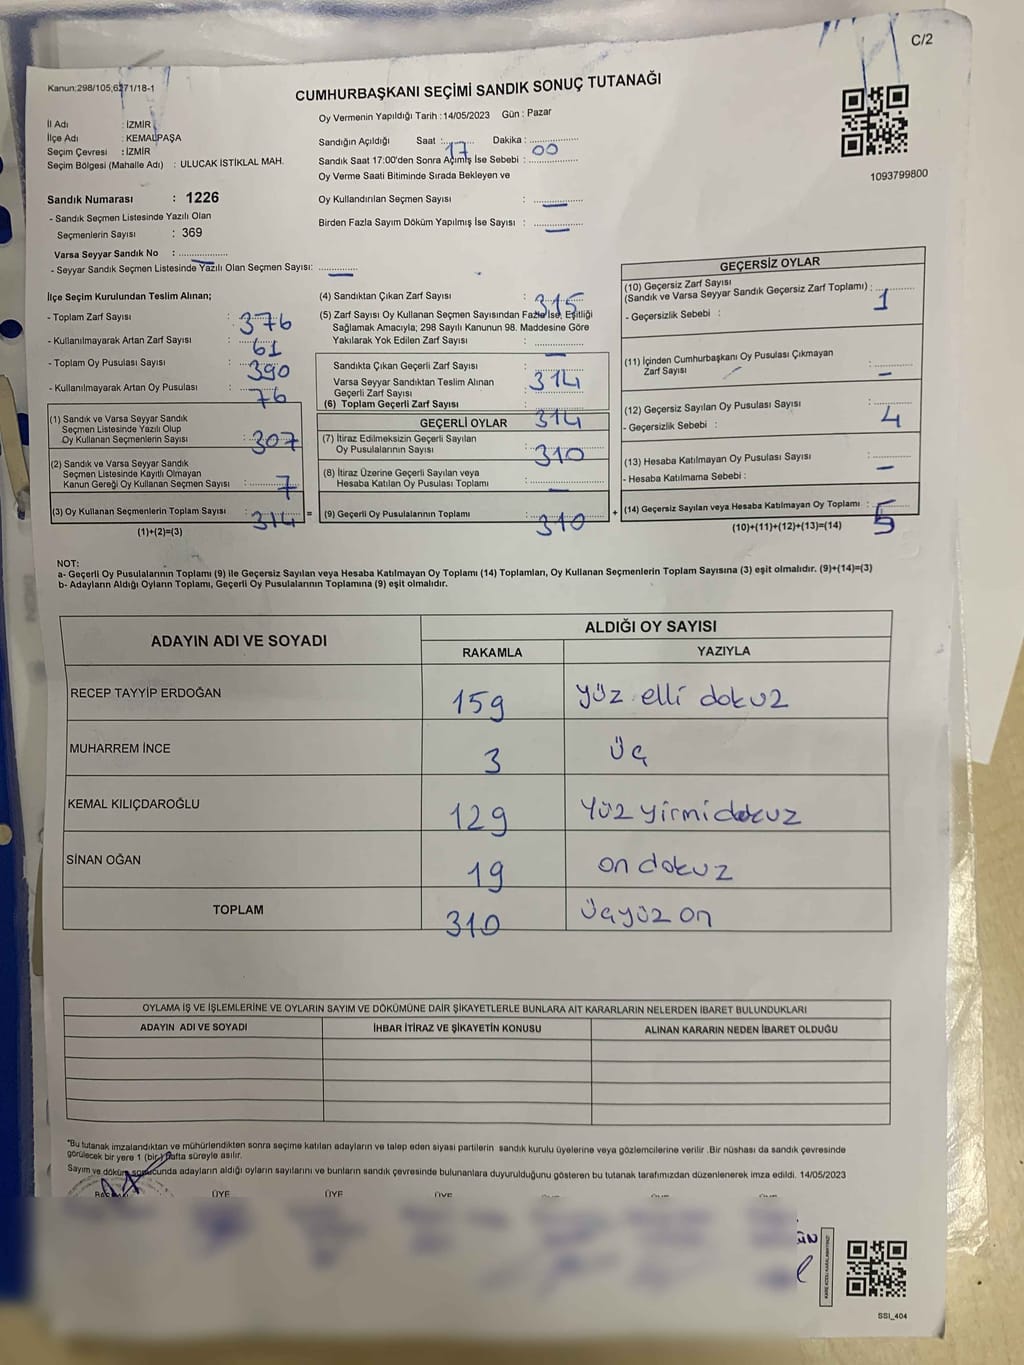 C/2
Kanun:298/105,6271/18-1
CUMHURBAŞKANI SEÇİMİ SANDIK SONUÇ TUTANAĞI
Oy Vermenin Yapıldığı Tarih :14/05/2023 Gün : Pazar
İl Adı : İZMİR
İlçe Adı : KEMALPAŞA
Seçim Çevresi : İZMİR
Seçim Bölgesi (Mahalle Adı) : ULUCAK İSTİKLAL MAH.
Sandığın Açıldığı Saat : 17 Dakika : 00
Sandık Saat 17:00'den Sonra Açılmış İse Sebebi :
Oy Verme Saati Bitiminde Sırada Bekleyen ve
Oy Kullandırılan Seçmen Sayısı : —
Birden Fazla Sayım Döküm Yapılmış İse Sayısı : —
1093799800
Sandık Numarası : 1226
- Sandık Seçmen Listesinde Yazılı Olan
Seçmenlerin Sayısı : 369
Varsa Seyyar Sandık No : —
- Seyyar Sandık Seçmen Listesinde Yazılı Olan Seçmen Sayısı: —
İlçe Seçim Kurulundan Teslim Alınan;
- Toplam Zarf Sayısı : 376
- Kullanılmayarak Artan Zarf Sayısı : 61
- Toplam Oy Pusulası Sayısı : 390
- Kullanılmayarak Artan Oy Pusulası : 76
(1) Sandık ve Varsa Seyyar Sandık
Seçmen Listesinde Yazılı Olup
Oy Kullanan Seçmenlerin Sayısı : 307
(2) Sandık ve Varsa Seyyar Sandık
Seçmen Listesinde Kayıtlı Olmayan
Kanun Gereği Oy Kullanan Seçmen Sayısı : 7
(3) Oy Kullanan Seçmenlerin Toplam Sayısı : 314
(1)+(2)=(3)
(4) Sandıktan Çıkan Zarf Sayısı : 315
(5) Zarf Sayısı Oy Kullanan Seçmen Sayısından Fazla İse, Eşitliği
Sağlamak Amacıyla; 298 Sayılı Kanunun 98. Maddesine Göre
Yakılarak Yok Edilen Zarf Sayısı : —
Sandıkta Çıkan Geçerli Zarf Sayısı : 314
Varsa Seyyar Sandıktan Teslim Alınan
Geçerli Zarf Sayısı :
(6) Toplam Geçerli Zarf Sayısı : 314
GEÇERLİ OYLAR
(7) İtiraz Edilmeksizin Geçerli Sayılan
Oy Pusulalarının Sayısı : 310
(8) İtiraz Üzerine Geçerli Sayılan veya
Hesaba Katılan Oy Pusulası Toplamı : —
= (9) Geçerli Oy Pusulalarının Toplamı : 310 +
GEÇERSİZ OYLAR
(10) Geçersiz Zarf Sayısı
(Sandık ve Varsa Seyyar Sandık Geçersiz Zarf Toplamı) : 1
- Geçersizlik Sebebi :
(11) İçinden Cumhurbaşkanı Oy Pusulası Çıkmayan
Zarf Sayısı : —
(12) Geçersiz Sayılan Oy Pusulası Sayısı : 4
- Geçersizlik Sebebi :
(13) Hesaba Katılmayan Oy Pusulası Sayısı : —
- Hesaba Katılmama Sebebi :
(14) Geçersiz Sayılan veya Hesaba Katılmayan Oy Toplamı : 5
(10)+(11)+(12)+(13)=(14)
NOT:
a- Geçerli Oy Pusulalarının Toplamı (9) ile Geçersiz Sayılan veya Hesaba Katılmayan Oy Toplamı (14) Toplamları, Oy Kullanan Seçmenlerin Toplam Sayısına (3) eşit olmalıdır. (9)+(14)=(3)
b- Adayların Aldığı Oyların Toplamı, Geçerli Oy Pusulalarının Toplamına (9) eşit olmalıdır.
ADAYIN ADI VE SOYADI ALDIĞI OY SAYISI
RAKAMLA YAZIYLA
RECEP TAYYİP ERDOĞAN 159 yüz elli dokuz
MUHARREM İNCE 3 üç
KEMAL KILIÇDAROĞLU 129 yüz yirmi dokuz
SİNAN OĞAN 19 on dokuz
TOPLAM 310 üçyüz on
OYLAMA İŞ VE İŞLEMLERİNE VE OYLARIN SAYIM VE DÖKÜMÜNE DAİR ŞİKAYETLERLE BUNLARA AİT KARARLARIN NELERDEN İBARET BULUNDUKLARI
ADAYIN ADI VE SOYADI İHBAR İTİRAZ VE ŞİKAYETİN KONUSU ALINAN KARARIN NEDEN İBARET OLDUĞU
"Bu tutanak imzalandıktan ve mühürlendikten sonra seçime katılan adayların ve talep eden siyasi partilerin sandık kurulu üyelerine veya gözlemcilerine verilir .Bir nüshası da sandık çevresinde
görülecek bir yere 1 (bir) hafta süreyle asılır.
Sayım ve döküm sonucunda adayların aldığı oyların sayılarını ve bunların sandık çevresinde bulunanlara duyurulduğunu gösteren bu tutanak tarafımızdan düzenlenerek imza edildi. 14/05/2023
ÜYE ÜYE ÜYE
SSI_404